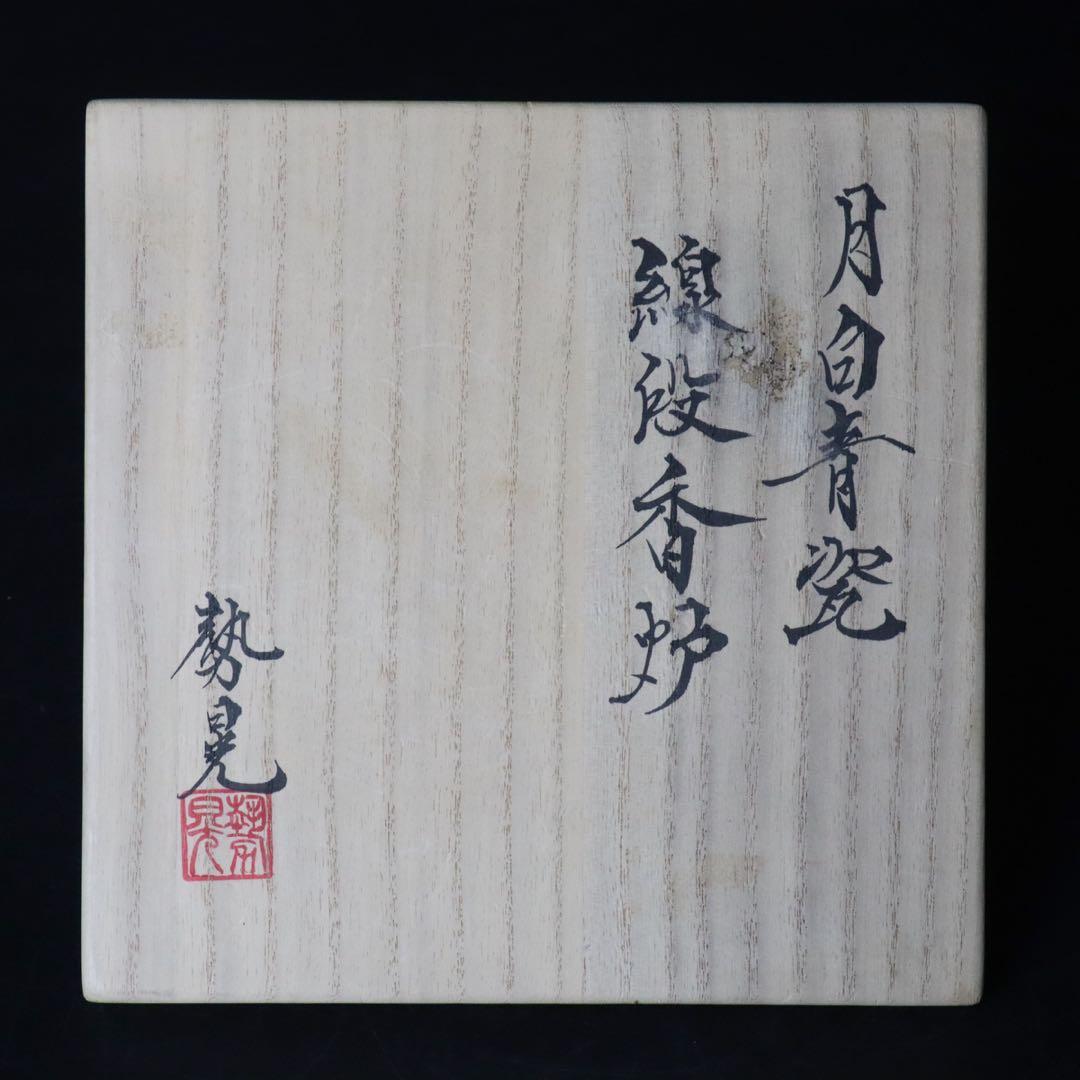 月白青瓷
線段香炉
勢晃
勢晃